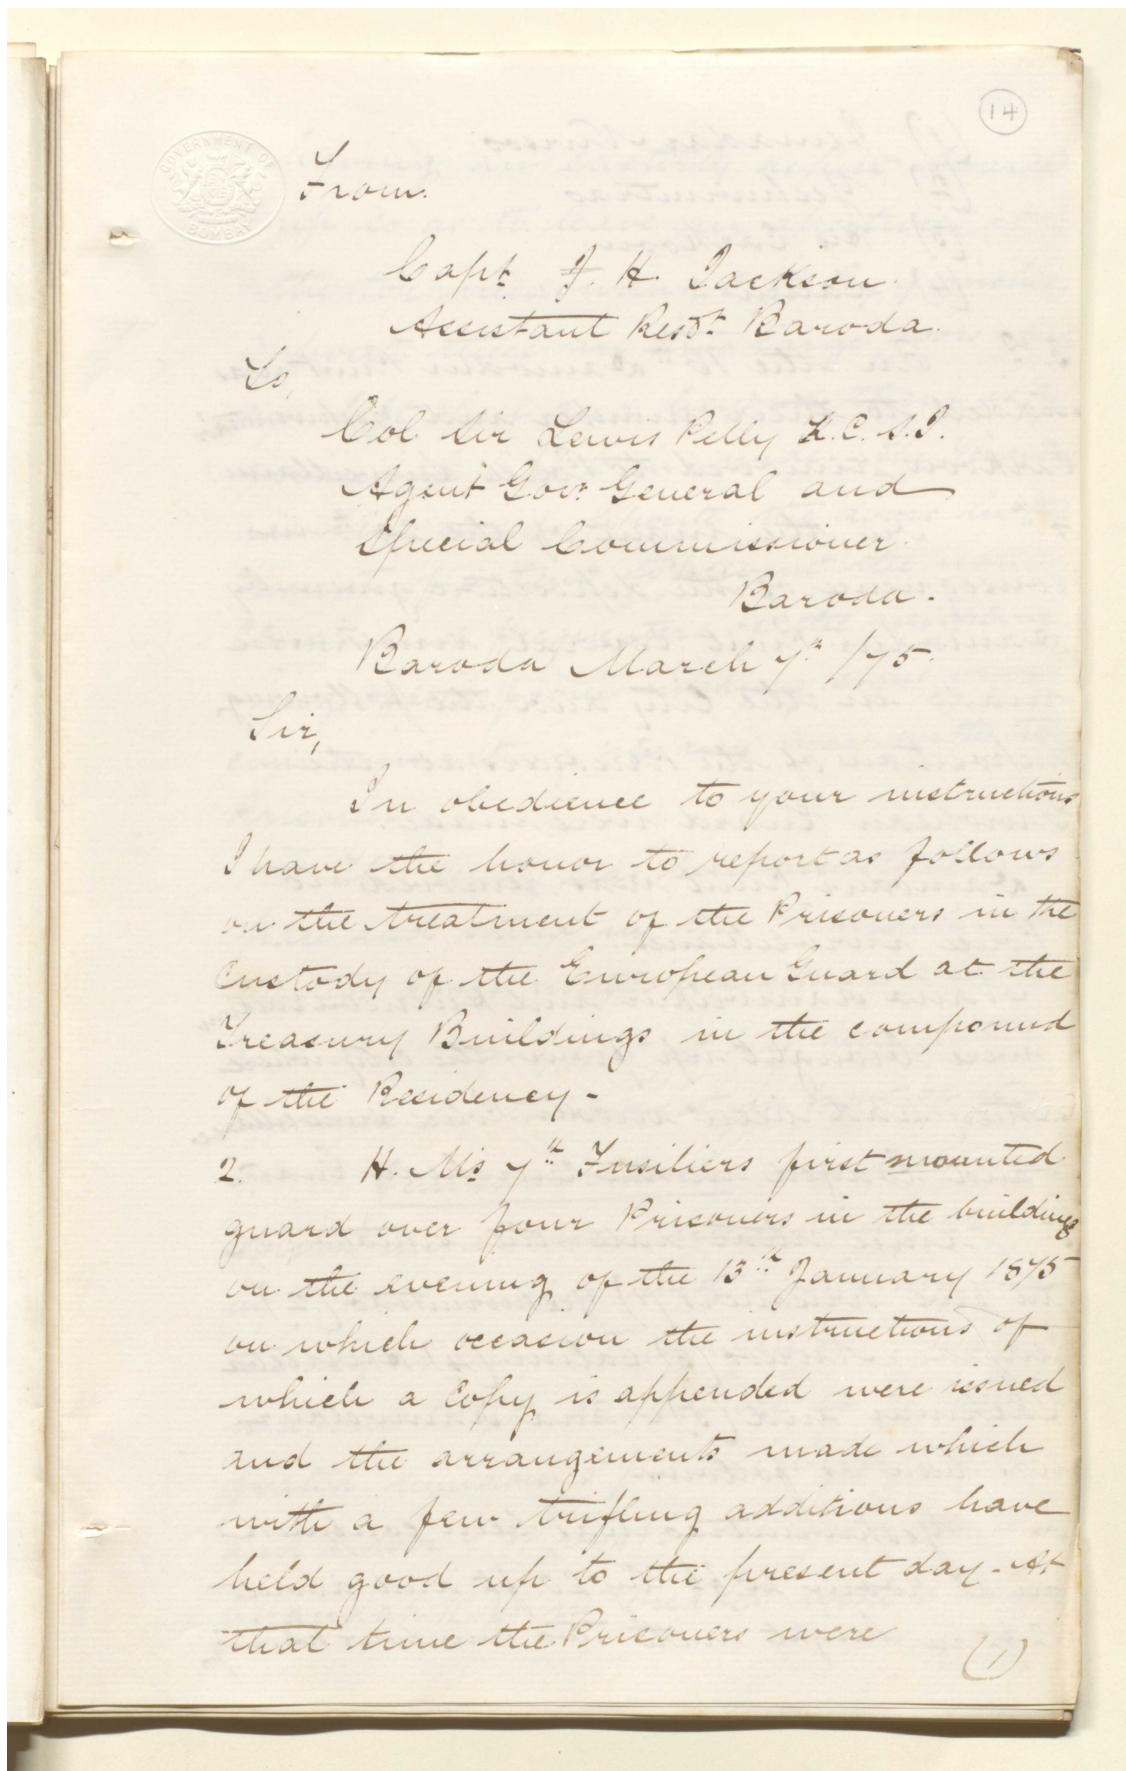 14
GOVERNMENT OF
BOMBAY
From.
Capt. J. H. Jackson.
Assistant Resdt. Baroda.
To,
Col Sir Lewis Pelly K.C.S.I.
Agent Govr. General and
Special Commissioner.
Baroda.
Baroda March 7th /75.
Sir,
In obedience to your instructions
I have the honor to report as follows
on the treatment of the Prisoners in the
Custody of the European Guard at the
Treasury Buildings in the compound
of the Residency-
2. H. Ms 7th Fusiliers first mounted
guard over four Prisoners in the buildings
on the evening of the 13th January 1875
on which occasion the instructions of
which a Copy is appended were issued
and the arrangements made which
with a few trifling additions have
held good up to the present day- At
that time the Prisoners were
(1)